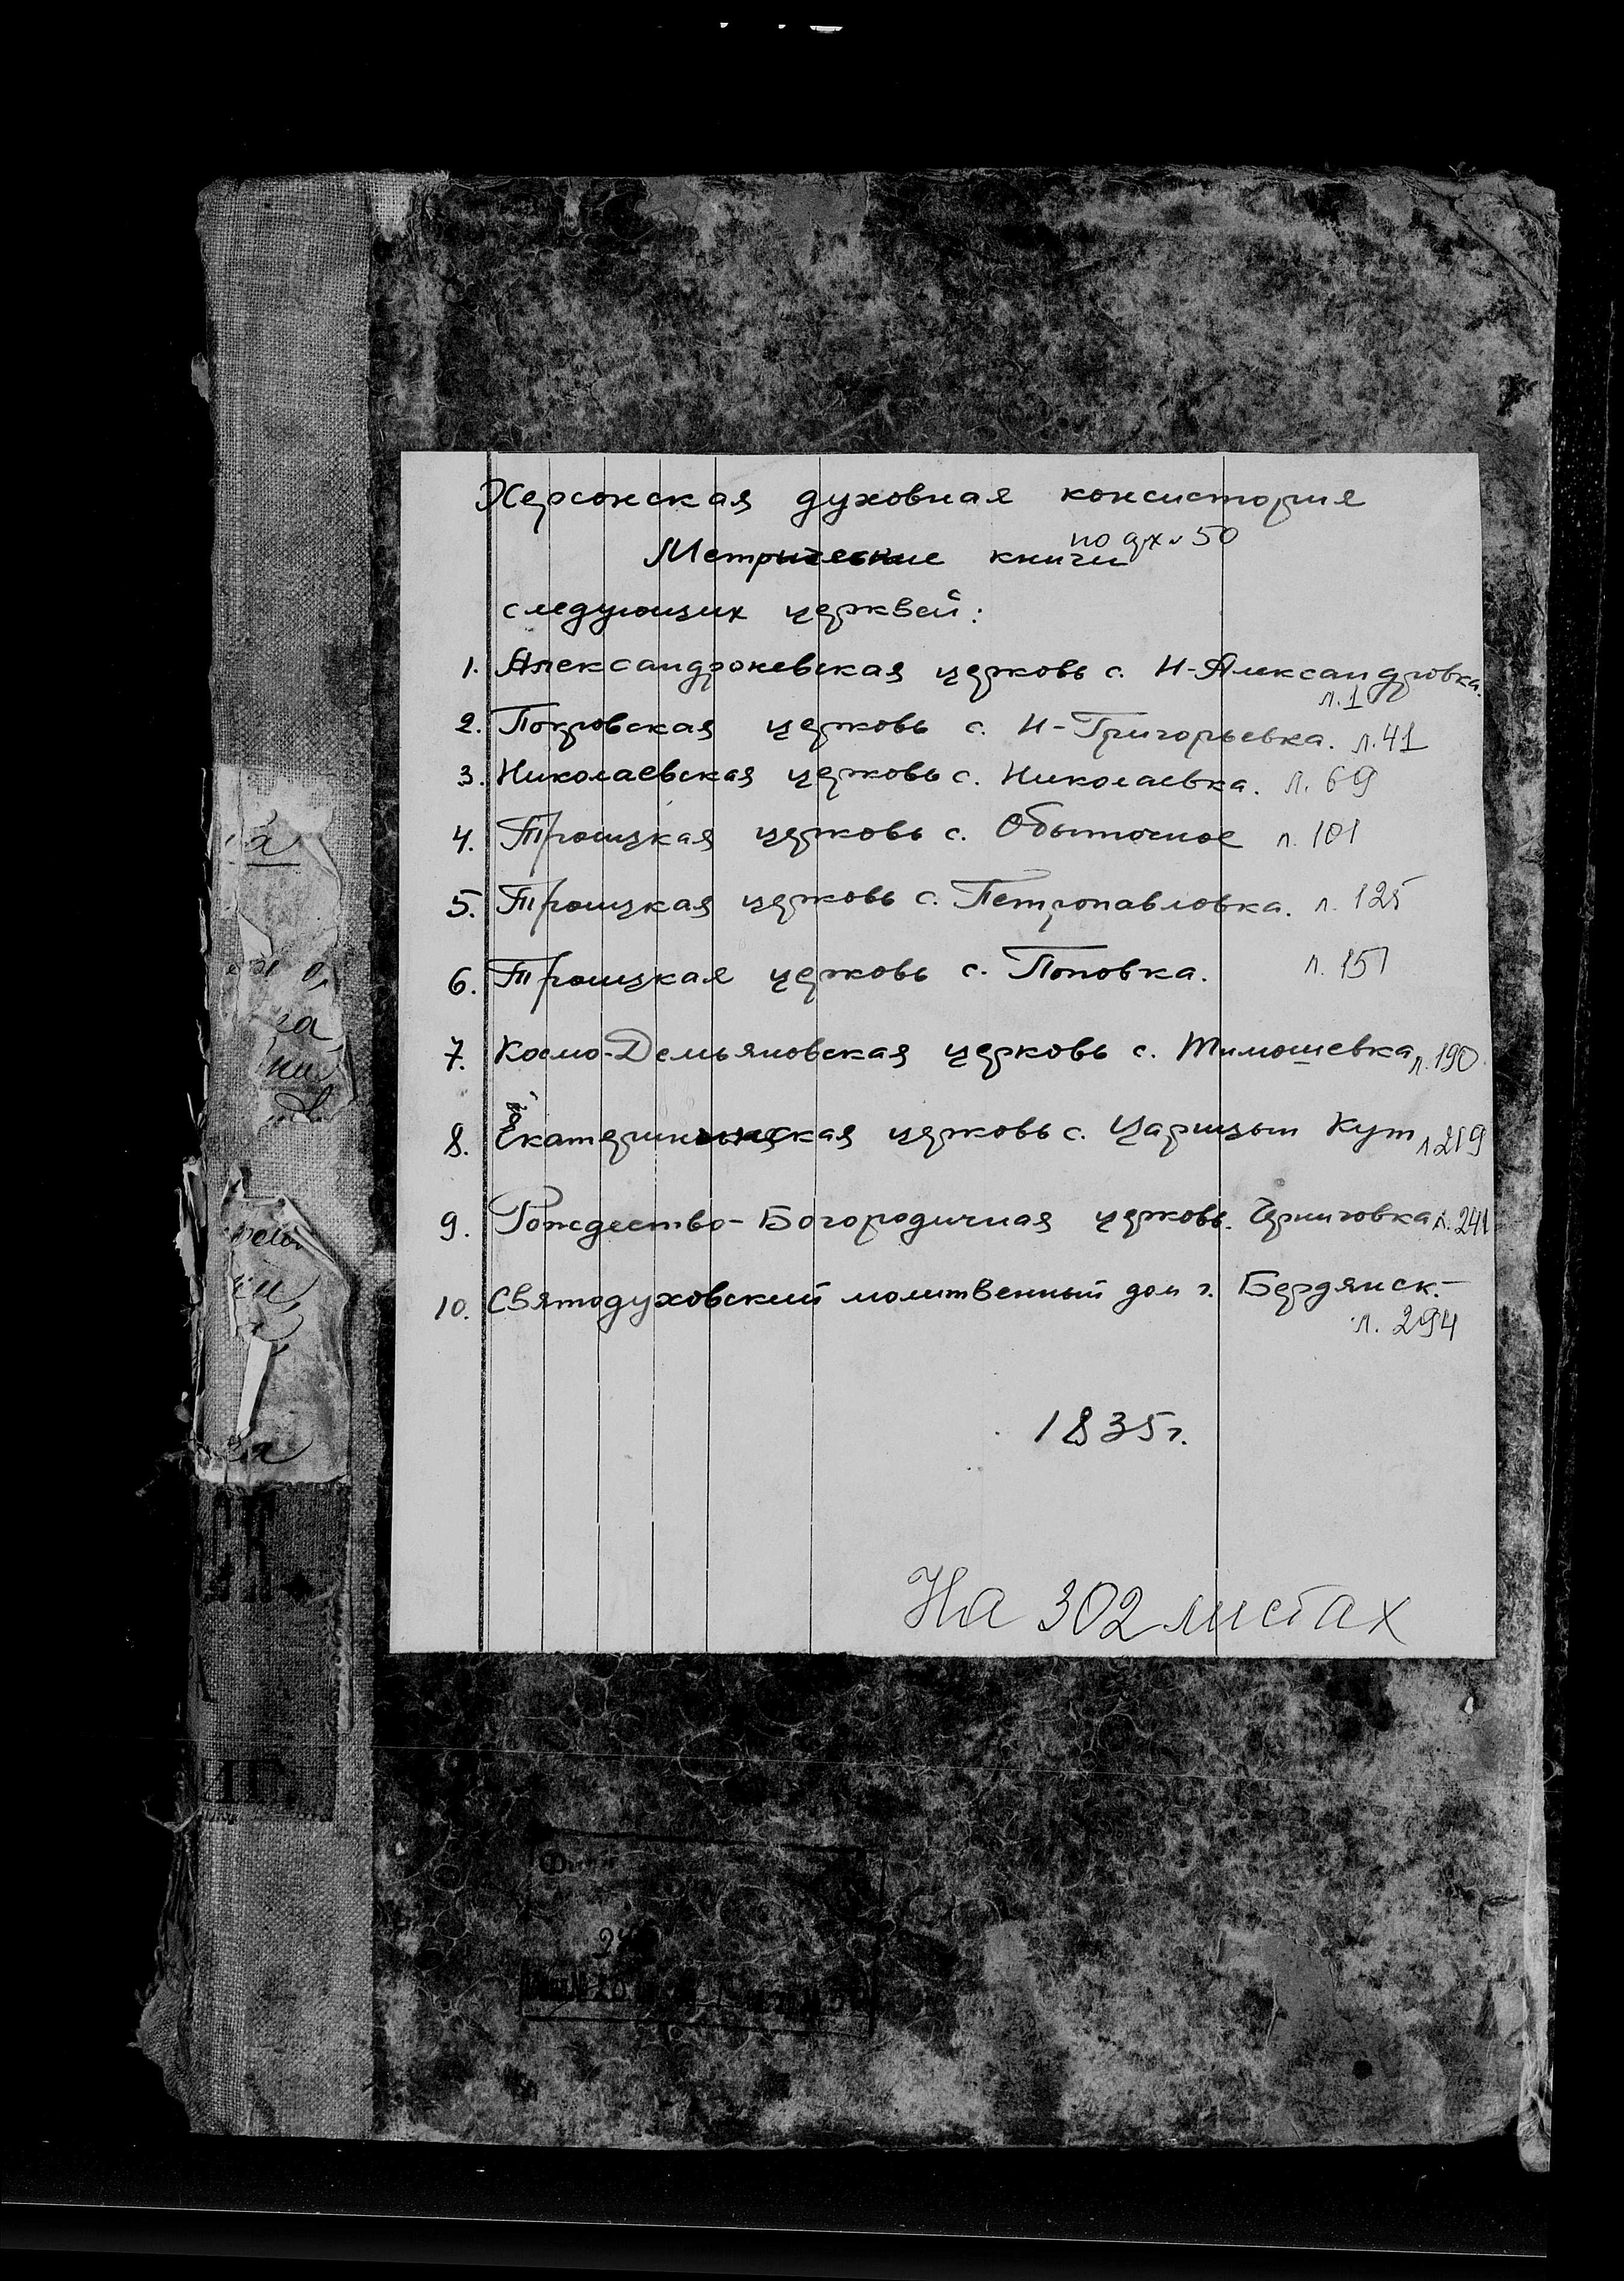 Херсонская духовная консистория
по арх. 50
Метрические книги
следующих церквей:
1. Александроневская церковь с. Н-Александровка.
л.1
2. Покровская церковь с. Н-Григорьевка. л.41
3. Николаевская церковь с. Николаевка. л. 69
4. Троицкая церковь с. Обыточное л. 101
5. Троицкая церковь с. Петропавловка. л. 125
6. Троицкая церковь с. Поповка. л. 151
7. Космо-Демьяновская церковь с. Тимошевка л. 190
8. Екатерининская церковь с. Царицын Кут л 219
9. Рождество-Богородичная церковь. Черниговка л. 241
10. Святодуховский молитвенный дом г. Бердянск.
л. 294
1835 г.
На 302 листах